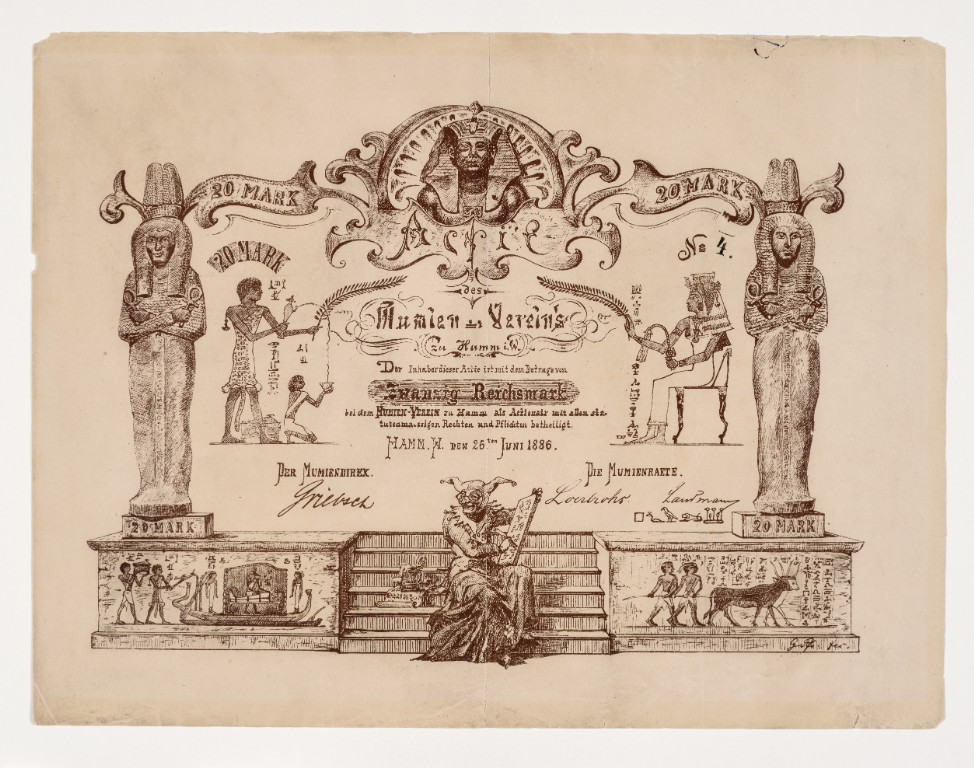 20 MARK
20 MARK
20 MARK
Actie
No 4.
des
Mumien-Vereins
zu Hamm i. W.
Der Inhaber dieser Actie ist mit dem Betrage von
Zwanzig Reichsmark
bei dem MUMIEN-VEREIN zu Hamm als Actionair mit allen sta-
tutenmässigen Rechten und Pflichten betheiligt.
HAMM. W. DEN 26ten JUNI 1886.
DER MUMIENDIREX.
DIE MUMIENRAETE.
Griebsch
Loerbroks
20 MARK
20 MARK